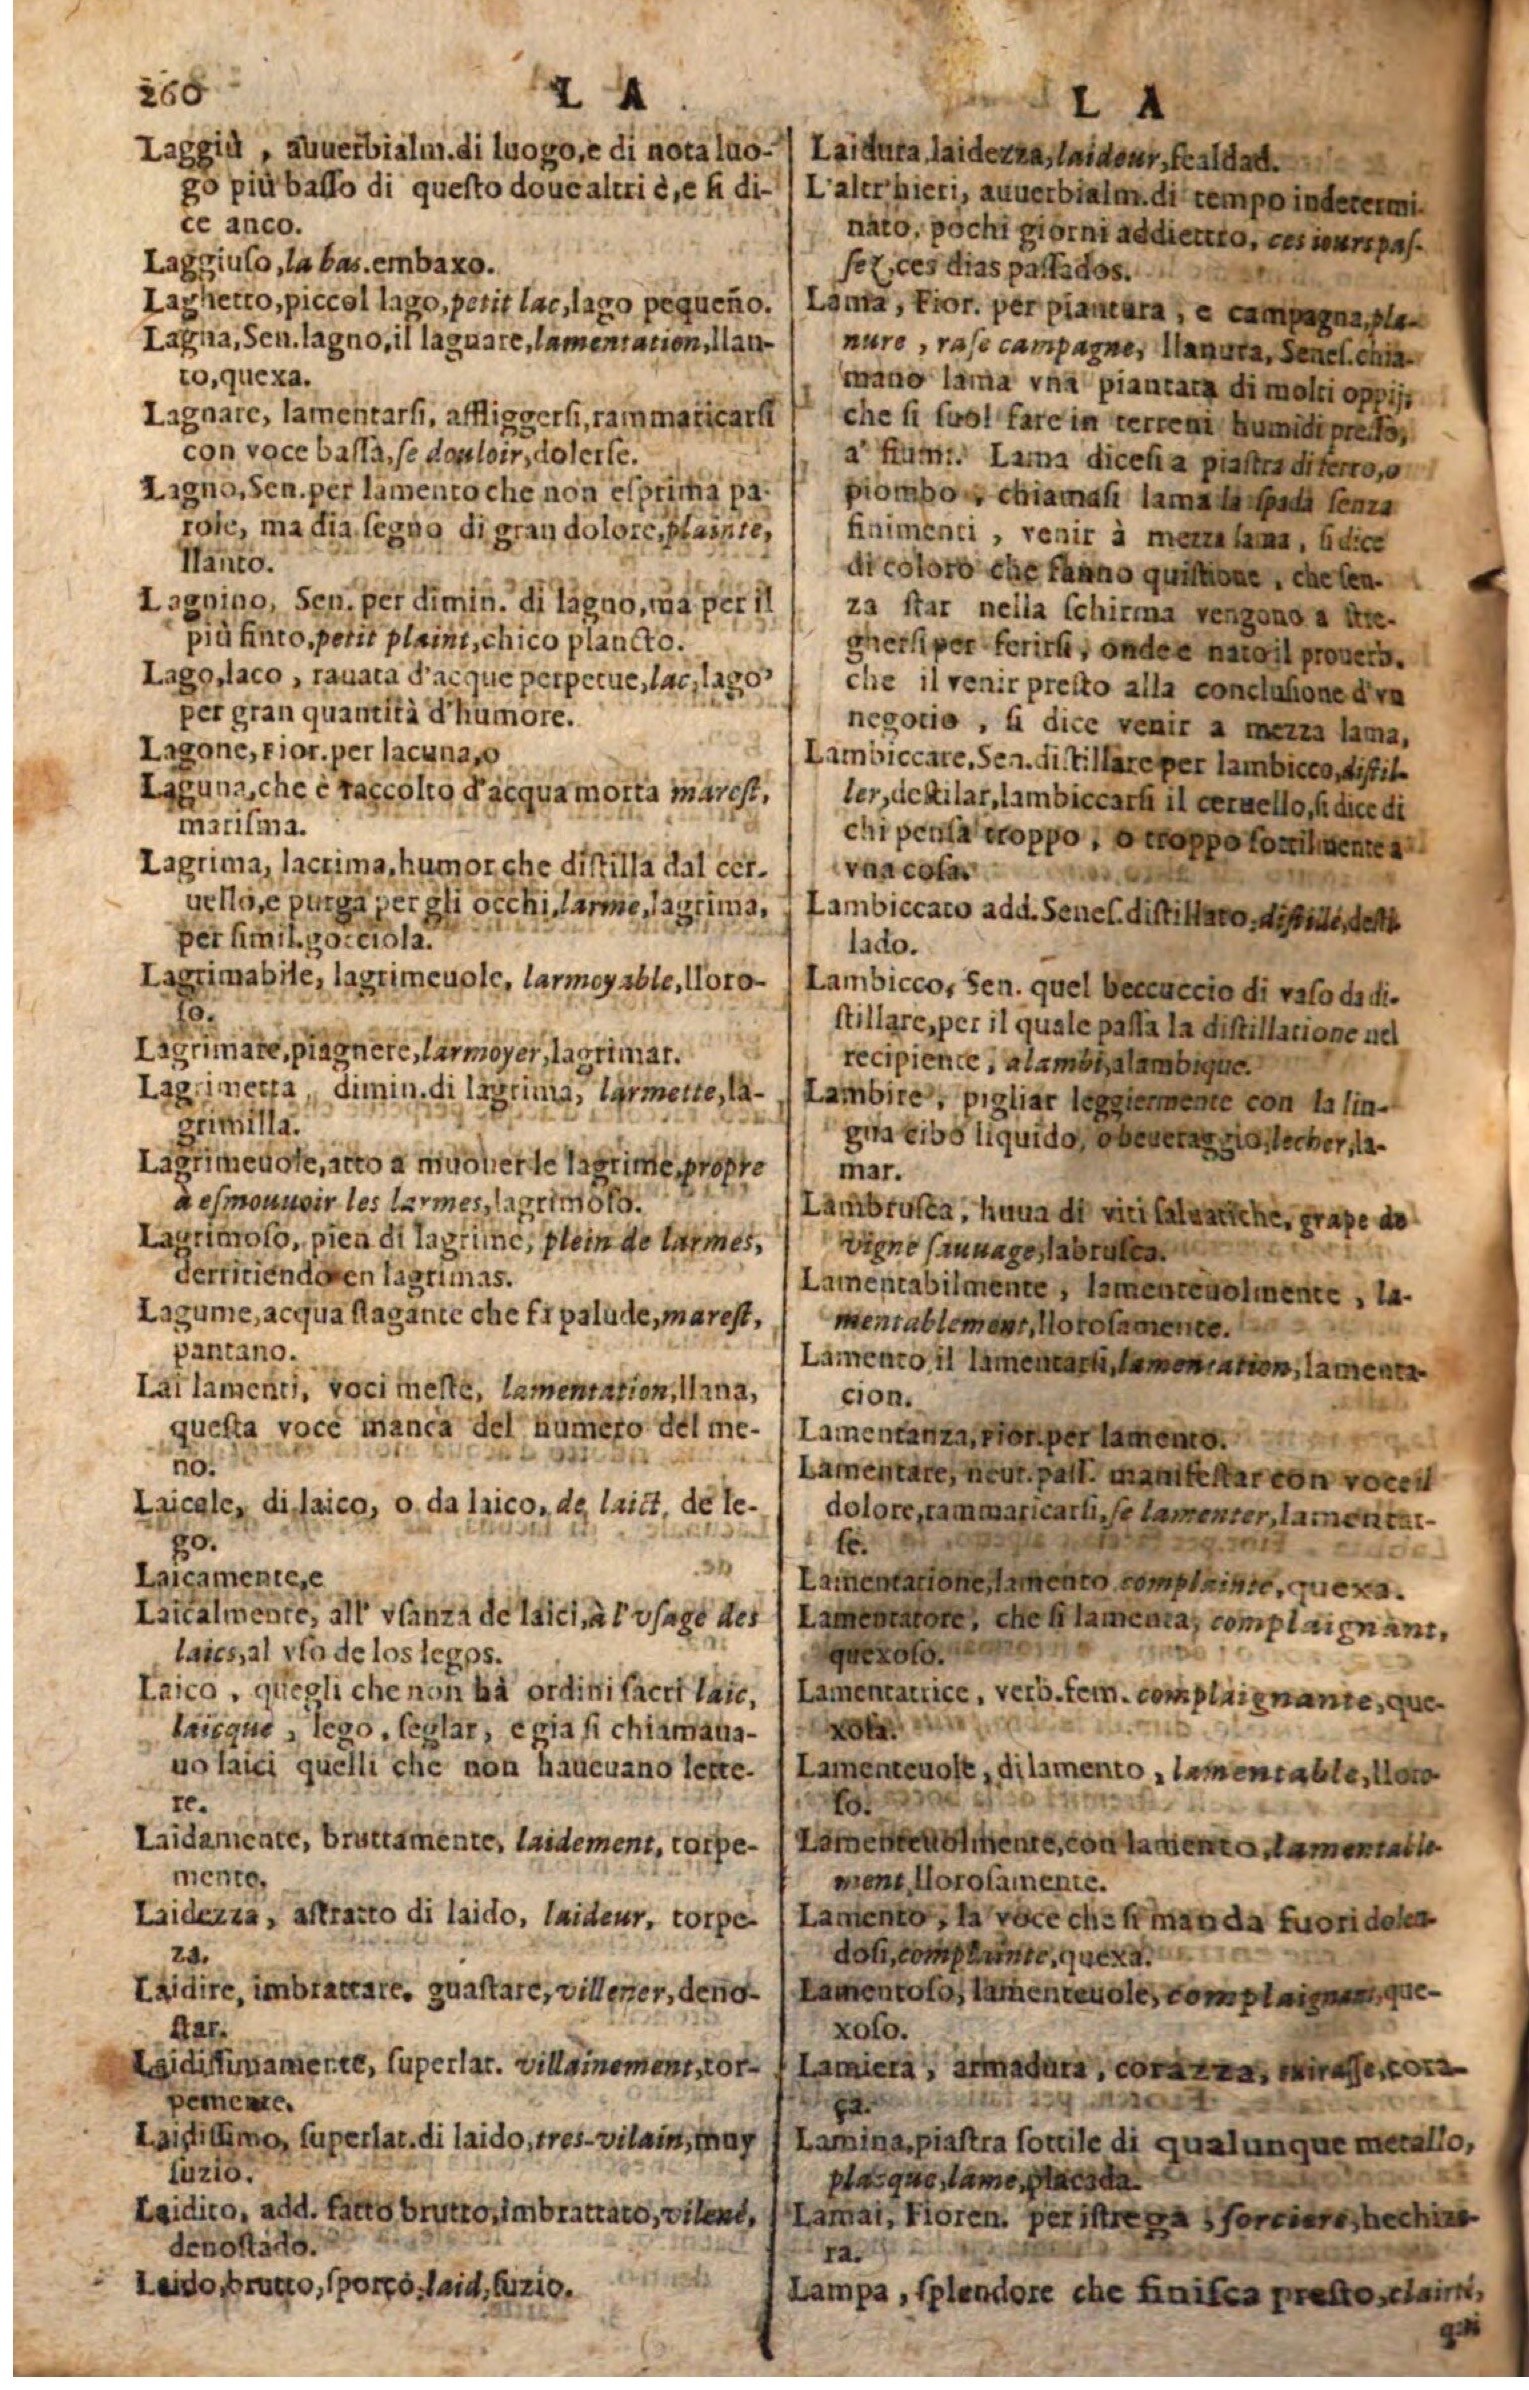 260 L A
Laggiù, auuerbialm. di luogo, e di nota luo-
go più basso di questo doue altri è, e si di-
ce anco.
Laggiuso, la bas. embaxo.
Laghetto, piccol lago, petit lac, lago pequeño.
Lagna, Sen. lagno, il lagnare, lamentation, llan-
to, quexa.
Lagnare, lamentarsi, affliggersi, rammaricarsi
con voce bassa, se douloir, dolerse.
Lagno, Sen. per lamento che non esprima pa-
role, ma dia segno di gran dolore, plainte,
llanto.
Lagnino, Sen. per dimin. di lagno, ma per il
più finto, petit plaint, chico plancto.
Lago, laco, rauata d'acque perpetue, lac, lago,
per gran quantità d'humore.
Lagone, Fior. per lacuna, o
Laguna, che è raccolto d'acqua morta marest,
marisma.
Lagrima, lacrima, humor che distilla dal cer-
uello, e purga per gli occhi, larme, lagrima,
per simil. gocciola.
Lagrimabile, lagrimeuole, larmoyable, lloro-
so.
Lagrimare, piagnere, larmoyer, lagrimar.
Lagrimetta, dimin. di lagrima, larmette, la-
grimilla.
Lagrimeuole, atto a muouer le lagrime, propre
à esmouuoir les larmes, lagrimoso.
Lagrimoso, pien di lagrime, plein de larmes,
derritiendo en lagrimas.
Lagume, acqua stagante che fa palude, marest,
pantano.
Lai lamenti, voci meste, lamentation, llana,
questa voce manca del numero del me-
no.
Laicale, di laico, o da laico, de laict, de le-
go.
Laicamente, e
Laicalmente, all' vsanza de laici, à l'vsage des
laics, al vso de los legos.
Laico, quegli che non hà ordini sacri laic,
laicque, lego, seglar, e gia si chiamaua-
no laici quelli che non haueuano lette-
re.
Laidamente, bruttamente, laidement, torpe-
mente.
Laidezza, astratto di laido, laideur, torpe-
za.
Laidire, imbrattare, guastare, villener, deno-
star.
Laidissimamente, superlat. villainement, tor-
pemente.
Laidissimo, superlat. di laido, tres-vilain, muy
suzio.
Laidito, add. fatto brutto, imbrattato, vilené,
denostado.
Laido, brutto, sporco, laid, suzio.
L A
Laidura, laidezza, laideur, fealdad.
L'altr'hieri, auuerbialm. di tempo indetermi-
nato, pochi giorni addietro, ces iours pas-
sez, ces dias passados.
Lama, Fior. per pianura, e campagna, pla-
nure, rase campagne, llanura, Senes. chia-
mano lama vna piantata di molti oppij,
che si suol fare in terreni humidi presso,
a' fiumi. Lama dicesi a piastra di ferro, o
piombo, chiamasi lama la spada senza
finimenti, venir à mezza lama, si dice
di coloro che fanno quistione, che sen-
za star nella schirma vengono a stre-
gnersi per ferirsi, onde è nato il prouerb.
che il venir presto alla conclusione d'vn
negotio, si dice venir a mezza lama,
Lambiccare, Sen. distillare per lambicco, distil-
ler, destilar, lambiccarsi il ceruello, si dice di
chi pensa troppo, o troppo sottilmente a
vna cosa.
Lambiccato add. Senes. distillato, distillé, desti-
lado.
Lambicco, Sen. quel beccuccio di vaso da di-
stillare, per il quale passa la distillatione nel
recipiente, alambi, alambique.
Lambire, pigliar leggiermente con la lin-
gua cibo liquido, o beueraggio, lecher, la-
mar.
Lambrusca, huua di viti saluatiche, grape de
vigne sauuage, labrusca.
Lamentabilmente, lamenteuolmente, la-
mentablement, llorosamente.
Lamento il lamentarsi, lamentation, lamenta-
cion.
Lamentanza, Fior. per lamento.
Lamentare, neut. pass. manifestar con voce il
dolore, rammaricarsi, se lamenter, lamentar-
se.
Lamentatione, lamento complainte, quexa.
Lamentatore, che si lamenta, complaignant,
quexoso.
Lamentatrice, verb. fem. complaignante, que-
xosa.
Lamenteuole, di lamento, lamentable, lloro-
so.
Lamenteuolmente, con lamento, lamentable-
ment, llorosamente.
Lamento, la voce che si manda fuori dolen-
dosi, complainte, quexa.
Lamentoso, lamenteuole, complaignant, que-
xoso.
Lamiera, armadura, corazza, cuirasse, cora-
ça.
Lamina, piastra sottile di qualunque metallo,
placque, lame, placada.
Lamai, Fioren. per istrega, sorciere, hechize-
ra.
Lampa, splendore che finisca presto,